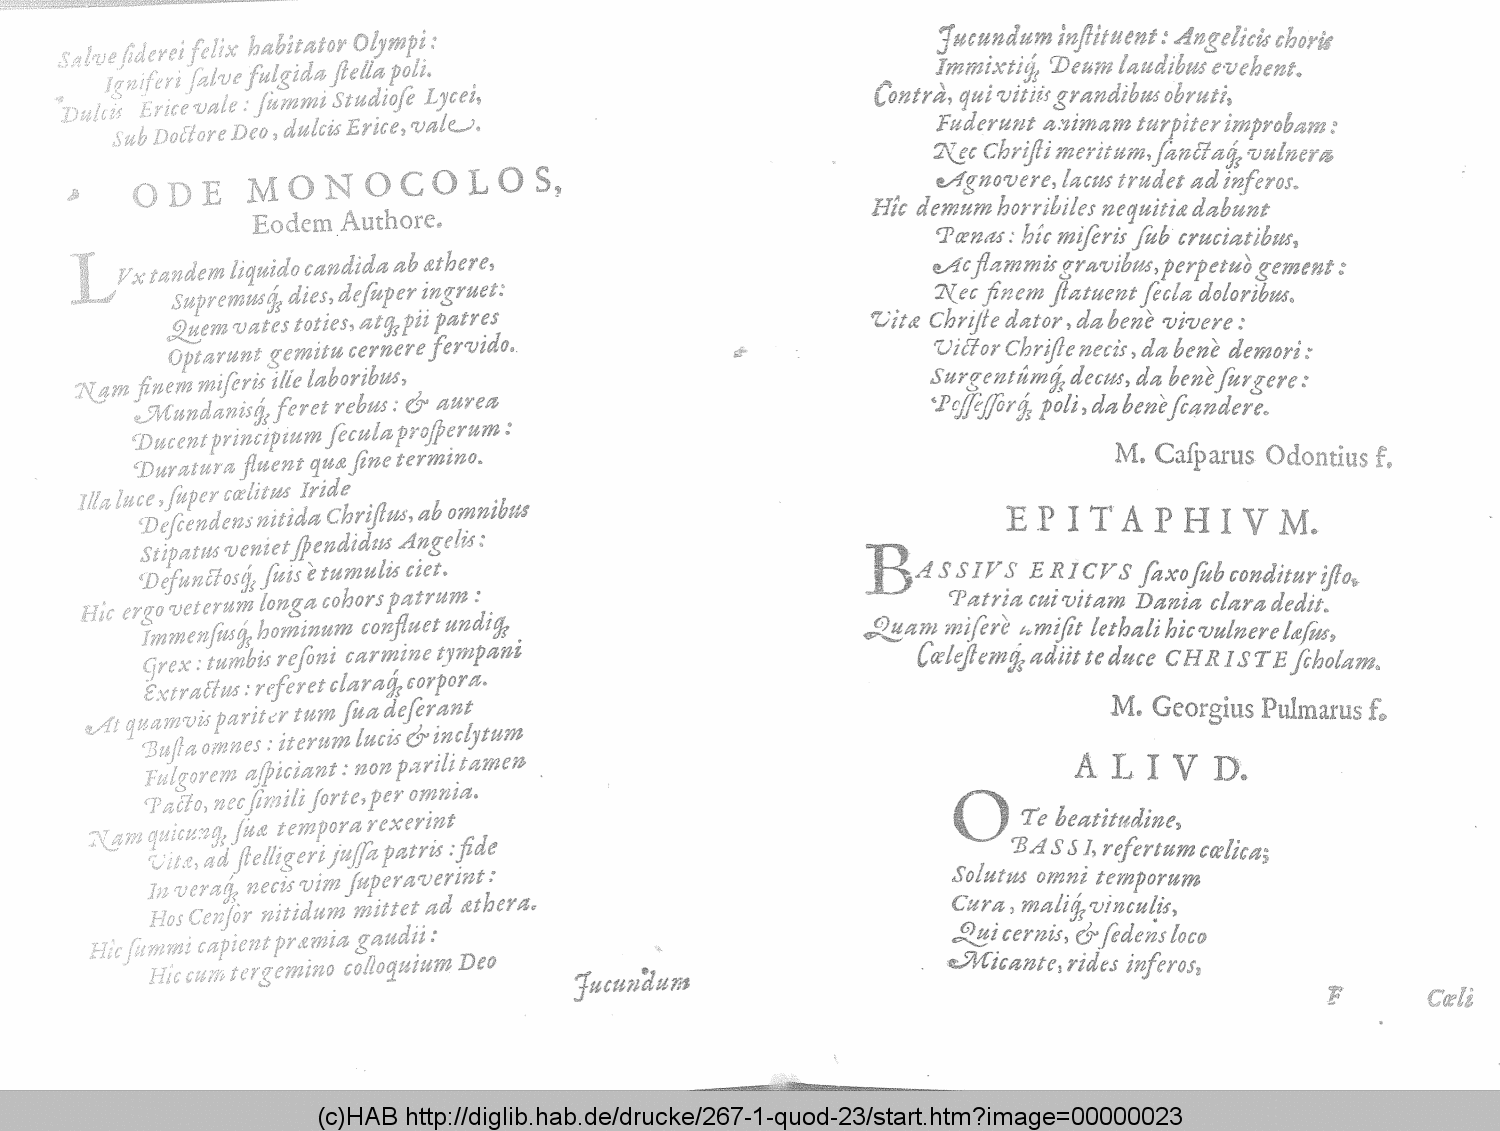 Salve ſiderei felix habitator Olympi:
Igniferi ſalve fulgida ſtella poli.
Dulcis Erice vale: ſummi Studioſe Lycei,
Sub Doctore Deo, dulcis Erice, vale.
ODE MONOCOLOS,
Eodem Authore.
LVx tandem liquido candida ab æthere,
Supremusq́; dies, deſuper ingruet:
Quem vates toties, atq; pii patres
Optarunt gemitu cernere fervido.
Nam finem miſeris ille laboribus,
Mundanisq́; feret rebus: & aurea
Ducent principium ſecula proſperum:
Duratura fluent quæ ſine termino.
Illa luce, ſuper cœlitus Iride
Deſcendens nitida Chriſtus, ab omnibus
Stipatus veniet ſpendidus Angelis:
Defunctosq́; ſuis è tumulis ciet.
Hic ergo veterum longa cohors patrum:
Immenſusq́; hominum confluet undiq;
Grex: tumbis reſoni carmine tympani
Extractus: referet claraq́; corpora.
At quamvis pariter tum ſua deferant
Buſta omnes: iterum lucis & inclytum
Fulgorem aſpiciant: non parili tamen
Pacto, nec ſimili ſorte, per omnia.
Nam quicunq; ſuæ tempora rexerint
Vitæ, ad ſtelligeri juſſa patris: fide
In veraq́; necis vim ſuperaverint:
Hos Cenſor nitidum mittet ad æthera.
Hîc ſummi capient præmia gaudii:
Hîc cum tergemino colloquium Deo
Jucundum
Jucundum inſtituent: Angelicis choris
Immixtiq́; Deum laudibus evehent.
Contrà, qui vitiis grandibus obruti,
Fuderunt animam turpiter improbam:
Nec Chriſti meritum, ſanctaq́; vulnera
Agnovere, lacus trudet ad inferos.
Hîc demum horribiles nequitiæ dabunt
Pœnas: hîc miſeris ſub cruciatibus,
Ac flammis gravibus, perpetuò gement:
Nec finem ſtatuent ſecla doloribus.
Vitæ Chriſte dator, da benè vivere:
Victor Chriſte necis, da benè demori:
Surgentûmq́; decus, da benè ſurgere:
Poſſeſſorq́; poli, da benè ſcandere.
M. Caſparus Odontius f.
EPITAPHIVM.
BASSIVS ERICVS ſaxo ſub conditur iſto,
Patria cui vitam Dania clara dedit.
Quam miſerè amiſit lethali hic vulnere læſus,
Cœleſtemq́; adiit te duce CHRISTE ſcholam.
M. Georgius Pulmarus f.
ALIVD.
O Te beatitudine,
BASSI, refertum cœlica;
Solutus omni temporum
Cura, maliq́; vinculis,
Qui cernis, & ſedens loco
Micante, rides inferos,
F Cœli
(c)HAB http://diglib.hab.de/drucke/267-1-quod-23/start.htm?image=00000023